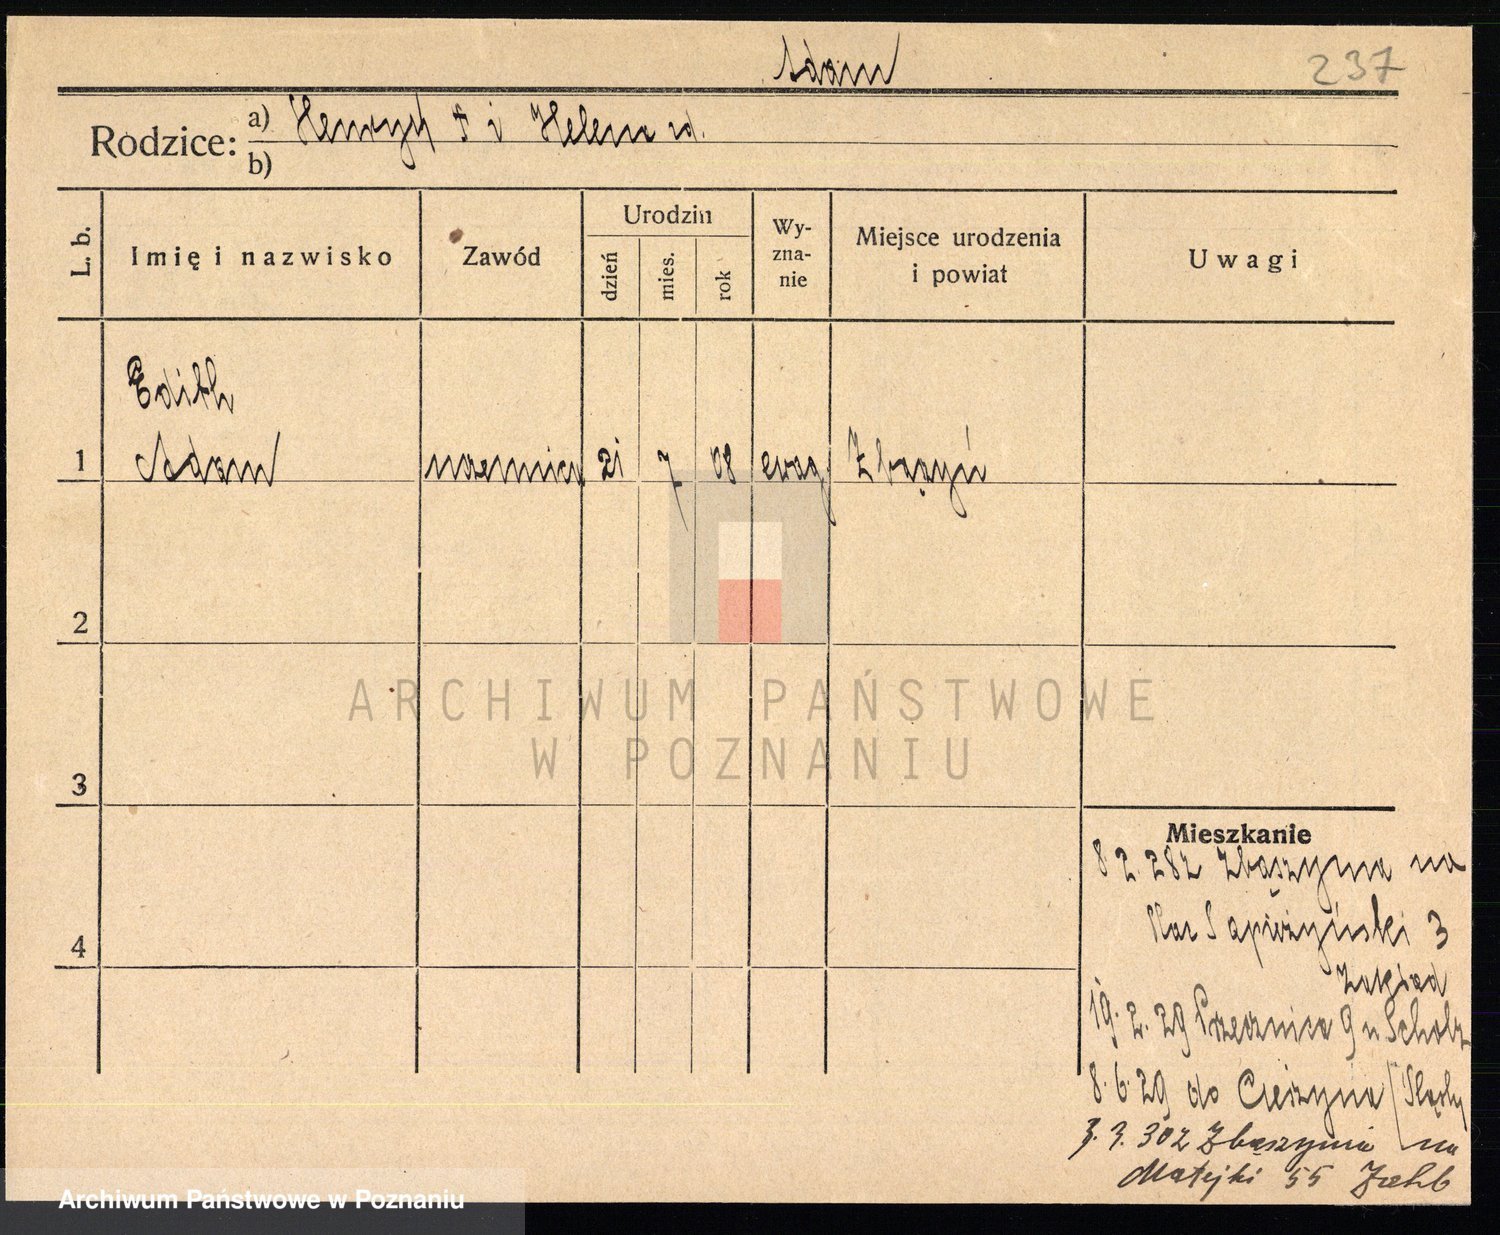 Adam
237
Rodzice:
a) Henryk † i Helena zd.
b)
L. b.
Imię i nazwisko
Zawód
Urodzin
dzień
mies.
rok
Wy-
zna-
nie
Miejsce urodzenia
i powiat
Uwagi
Edith
1 Adam uczennica 21 7 08 ewag Zbąszyń
2
3
4
ARCHIWUM PAŃSTWOWE
W POZNANIU
Mieszkanie
8.2.28 z Zbąszynia na
Sapieżyński 3
Zakład
19.2.29 Przecznica 9 u Scholz
8.6.29 do Cieszyna (Śląsk)
3.3.30 z Zbąszynia na
Matejki 55
Archiwum Państwowe w Poznaniu